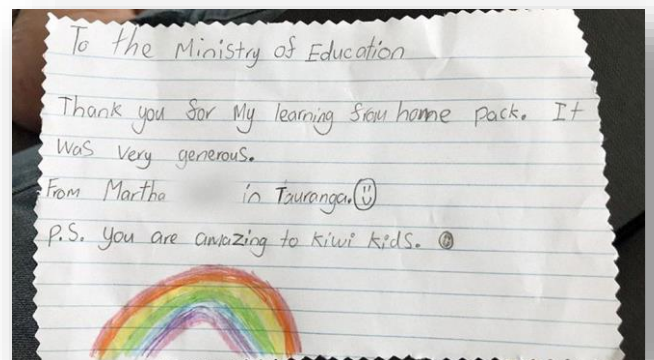 To the Ministry of Education
Thank you for my learning from home pack. It
was very generous.
From Martha in Tauranga.
P.S. you are amazing to kiwi kids.